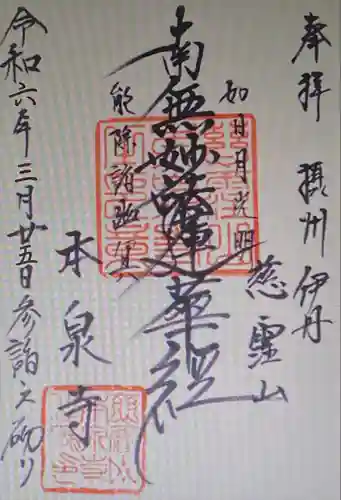 奉拝 摂州 伊丹
慈霊山
如日月光明
南無妙法蓮華経
能除諸幽冥
本泉寺
令和六年三月廿五日参詣之砌り